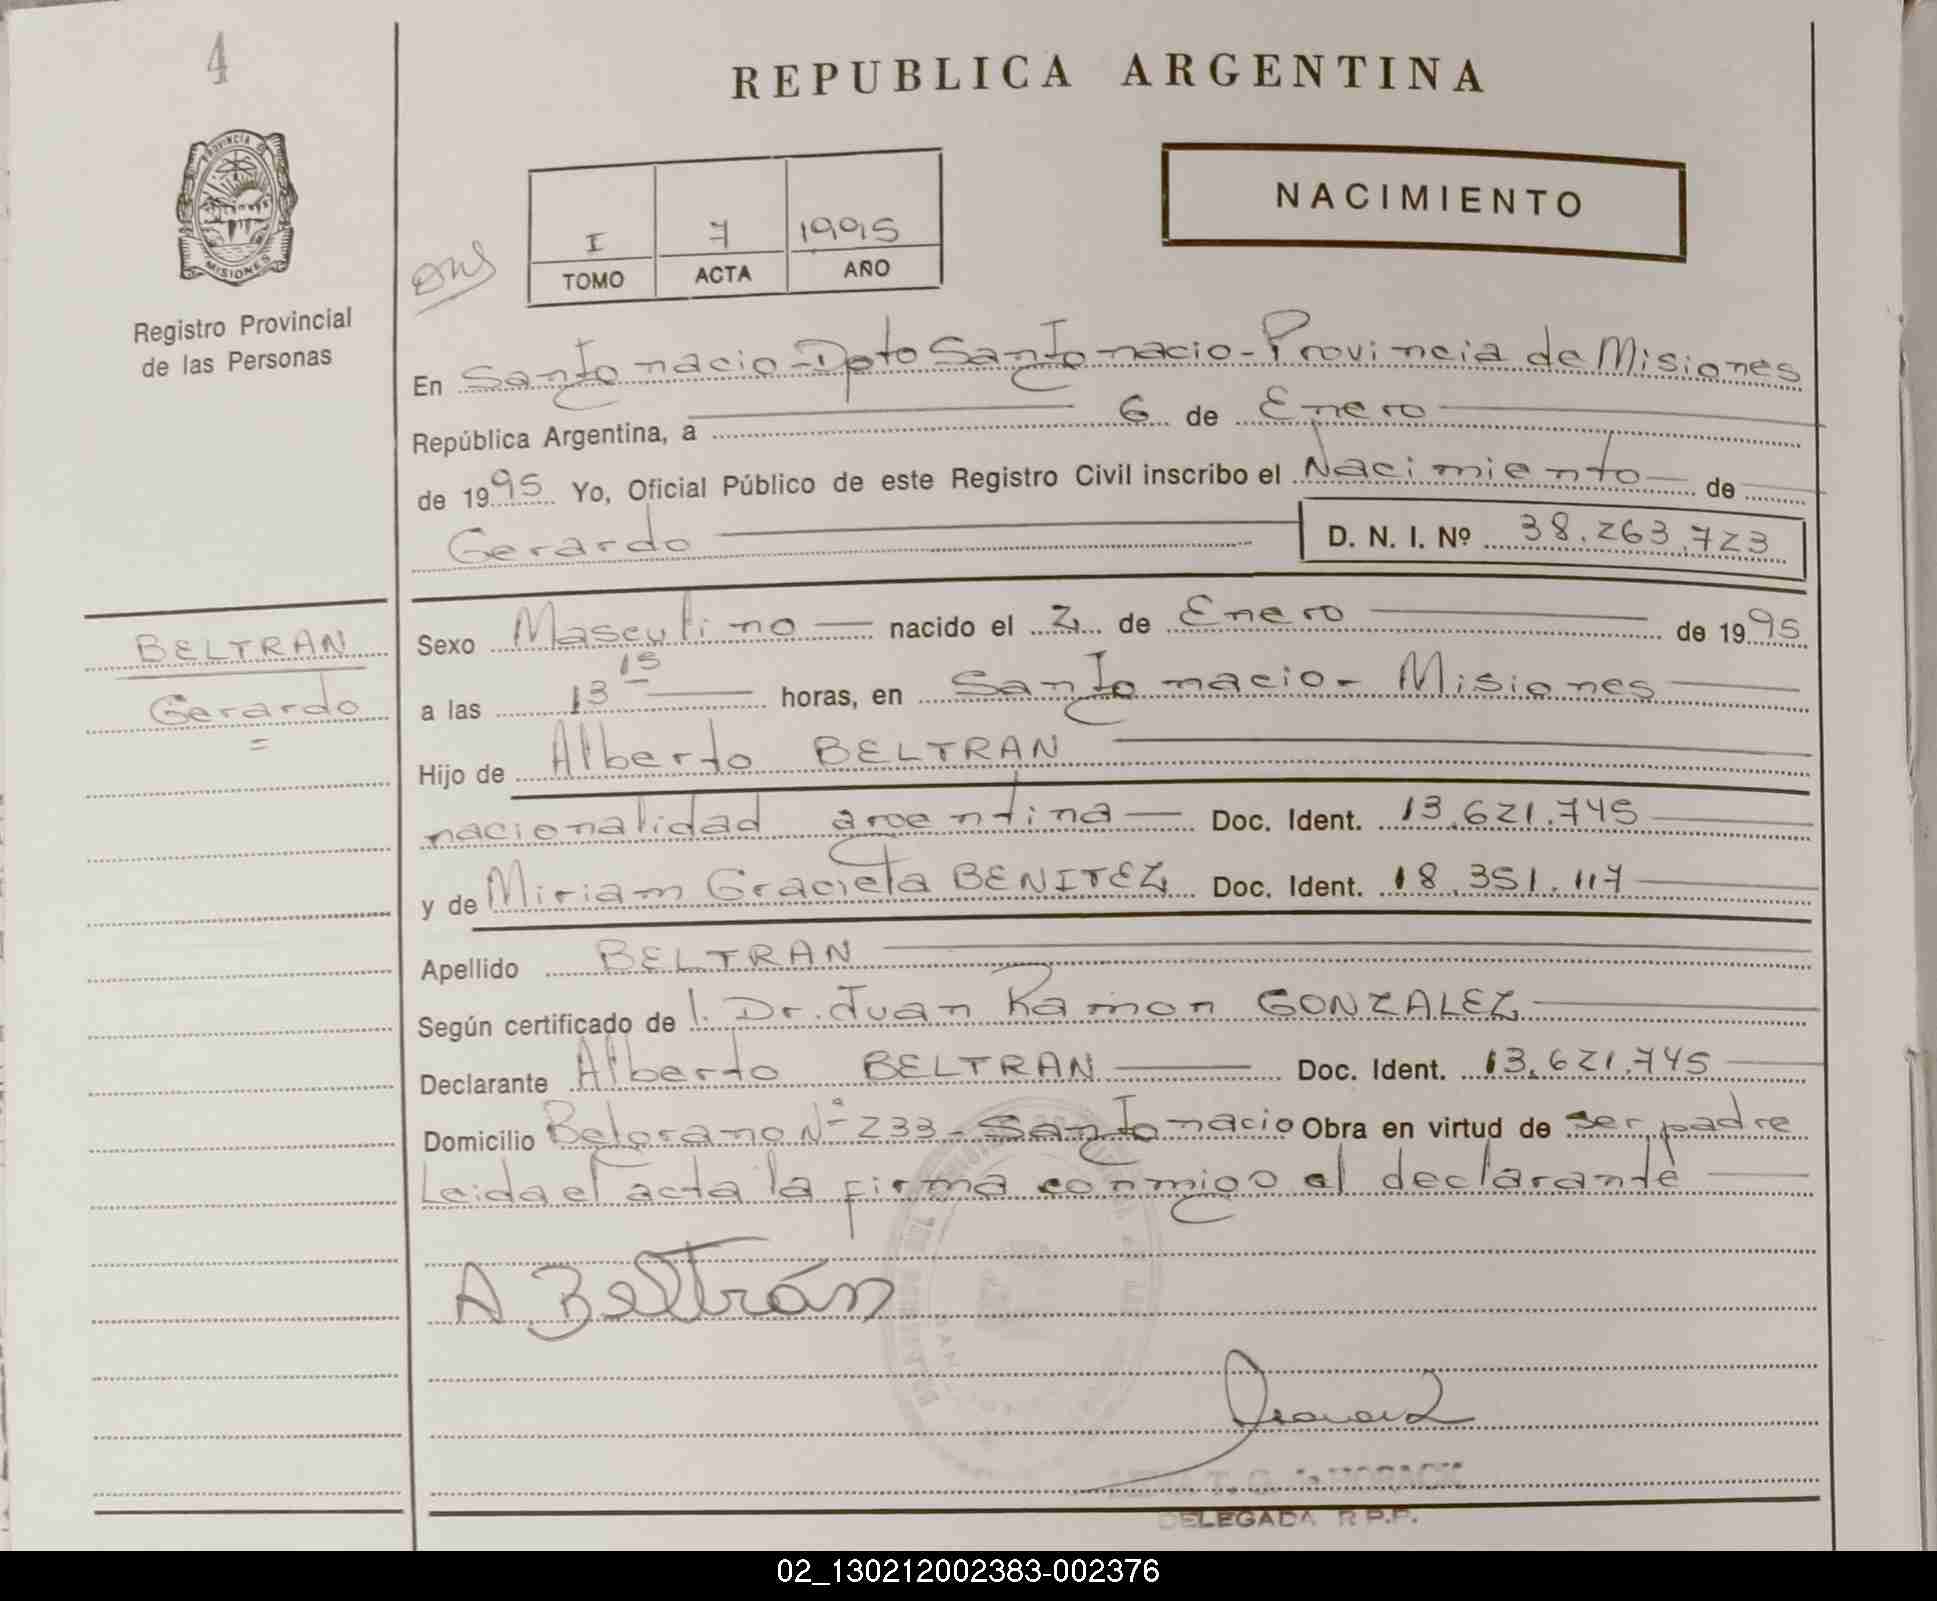 4
REPUBLICA ARGENTINA
PROVINCIA DE
MISIONES
Registro Provincial
de las Personas
I 7 1995
TOMO ACTA AÑO
NACIMIENTO
En San Ignacio - Dpto San Ignacio - Provincia de Misiones
República Argentina, a 6 de Enero
de 1995 Yo, Oficial Público de este Registro Civil inscribo el Nacimiento de
Gerardo D. N. I. Nº 38.263.723
BELTRAN
Gerardo
Sexo Masculino nacido el 2 de Enero de 1995
a las 13 15 horas, en San Ignacio - Misiones
Hijo de Alberto BELTRAN
nacionalidad argentina Doc. Ident. 13.621.745
y de Miriam Graciela BENITEZ Doc. Ident. 18.351.117
Apellido BELTRAN
Según certificado de l. Dr. Juan Ramon GONZALEZ
Declarante Alberto BELTRAN Doc. Ident. 13.621.745
Domicilio Belgrano Nº 233 - San Ignacio Obra en virtud de ser padre
Leida el acta la firma conmigo el declarante
A Beltrán
DELEGADA R.P.P.
02_130212002383-002376